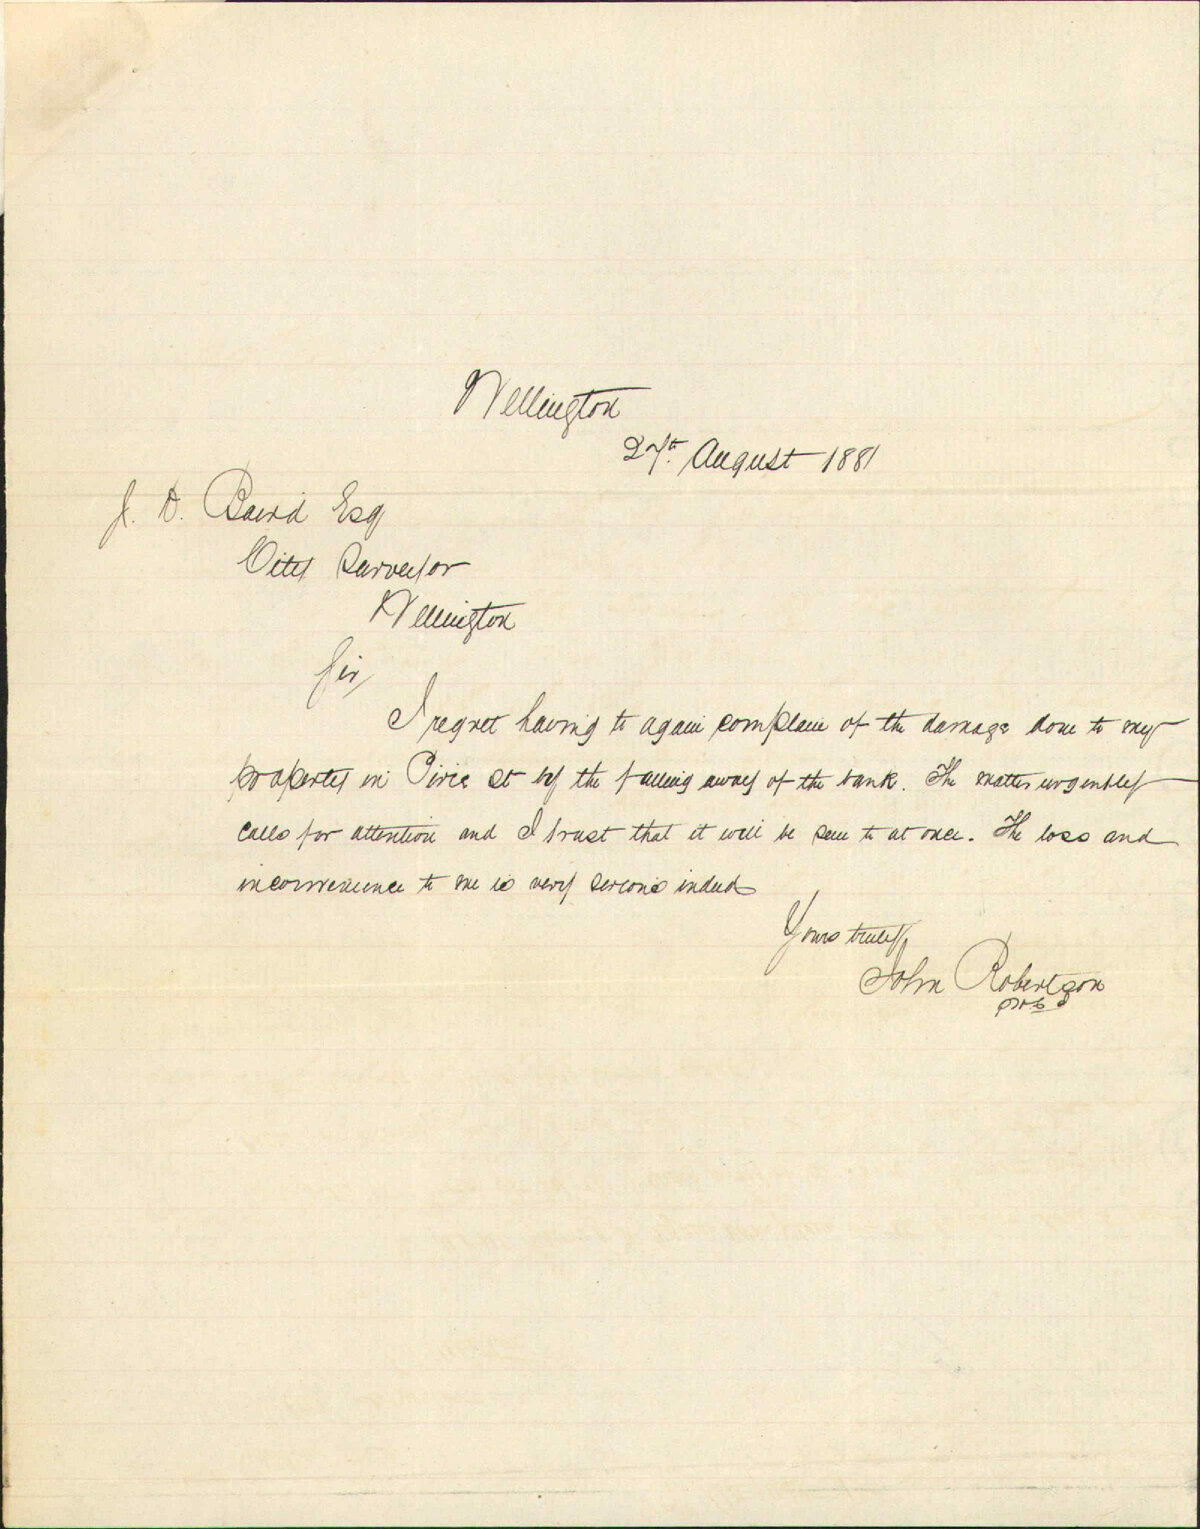 Wellington
27th. August 1881
J. D. Baird Esq
City Surveyor
Wellington
Sir,
I regret having to again complain of the damage done to my
property in Pirie St by the falling away of the bank. The matter urgently
calls for attention and I trust that it will be seen to at once. The loss and
inconvenience to me is very serious indeed
Yours truly,
John Robertson